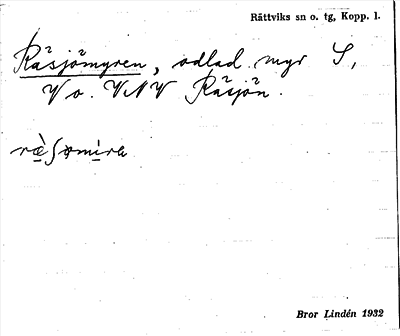 Rättviks sn o. tg, Kopp. l.
Räsjömyren, odlad myr S,
V o. VNV Räsjön.
Bror Lindén 1932